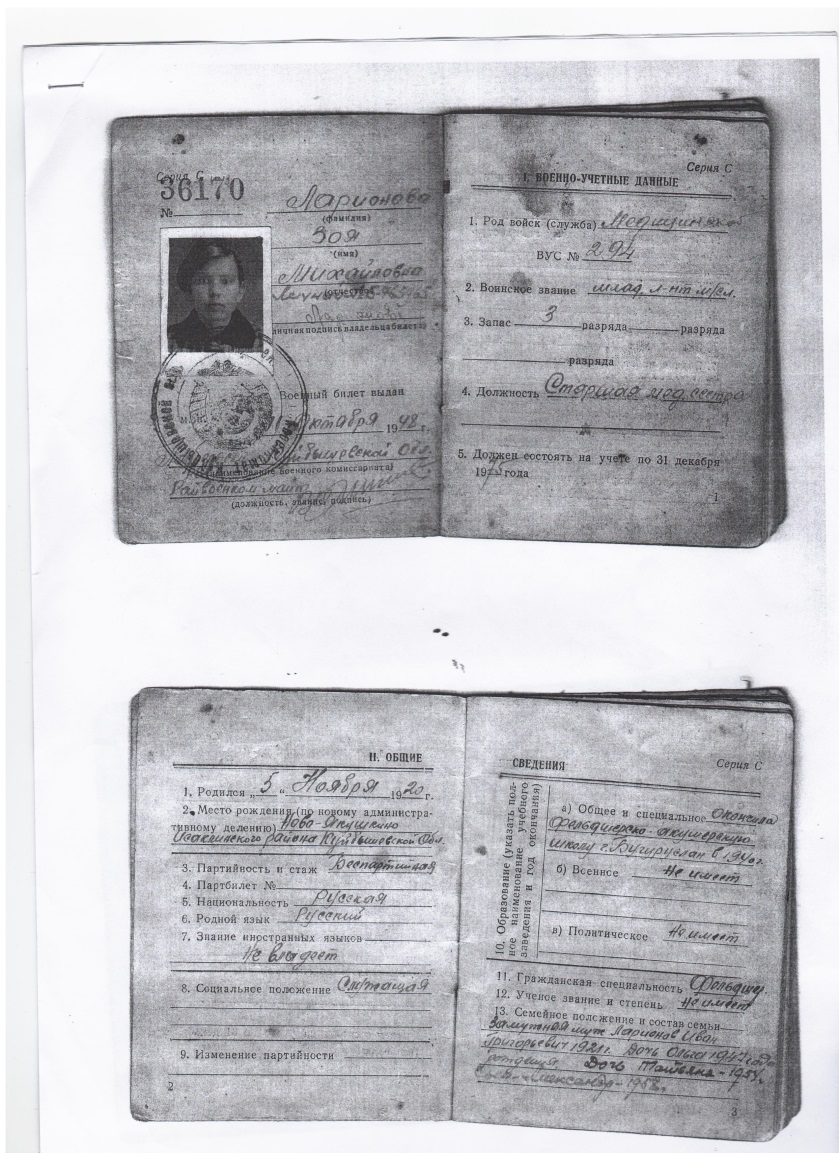 Серия С
36170
№
Ларионова
(фамилия)
Зоя
(имя)
Михайловна
(отчество)
(личная подпись владельца билета)
Военный билет выдан
Октября 1948 г.
Куйбышевской Обл.
(наименование военного комиссариата)
Райвоенком майор
(должность, звание, подпись)
Серия С
I. ВОЕННО-УЧЕТНЫЕ ДАННЫЕ
1. Род войск (служба) Медицинской
ВУС № 294
2. Воинское звание млад. л-нт м/сл.
3. Запас 3 разряда разряда
разряда
4. Должность Старшая мед. сестра
5. Должен состоять на учете по 31 декабря
1975 года
1
II. ОБЩИЕ
1. Родился „5“ Ноября 1920 г.
2. Место рождения (по новому администра-
тивному делению) Ново-Якушкино
Исаклинского района Куйбышевской Обл.
3. Партийность и стаж Беспартийная
4. Партбилет №
5. Национальность Русская
6. Родной язык Русский
7. Знание иностранных языков
Не владеет
8. Социальное положение Служащая
9. Изменение партийности
2
СВЕДЕНИЯ
Серия С
10. Образование (указать пол-
ное наименование учебного
заведения и год окончания)
а) Общее и специальное Окончила
Фельдшерско-акушерскую
школу г. Бугуруслан в 1940 г.
б) Военное Не имеет
в) Политическое Не имеет
11. Гражданская специальность Фельдшер
12. Ученое звание и степень Не имеет
13. Семейное положение и состав семьи
Замужняя муж Ларионов Иван
Григорьевич 1921 г. Дочь Ольга 1947 года
рождения Дочь Татьяна - 1954 г.
Александр - 1958 г.
3